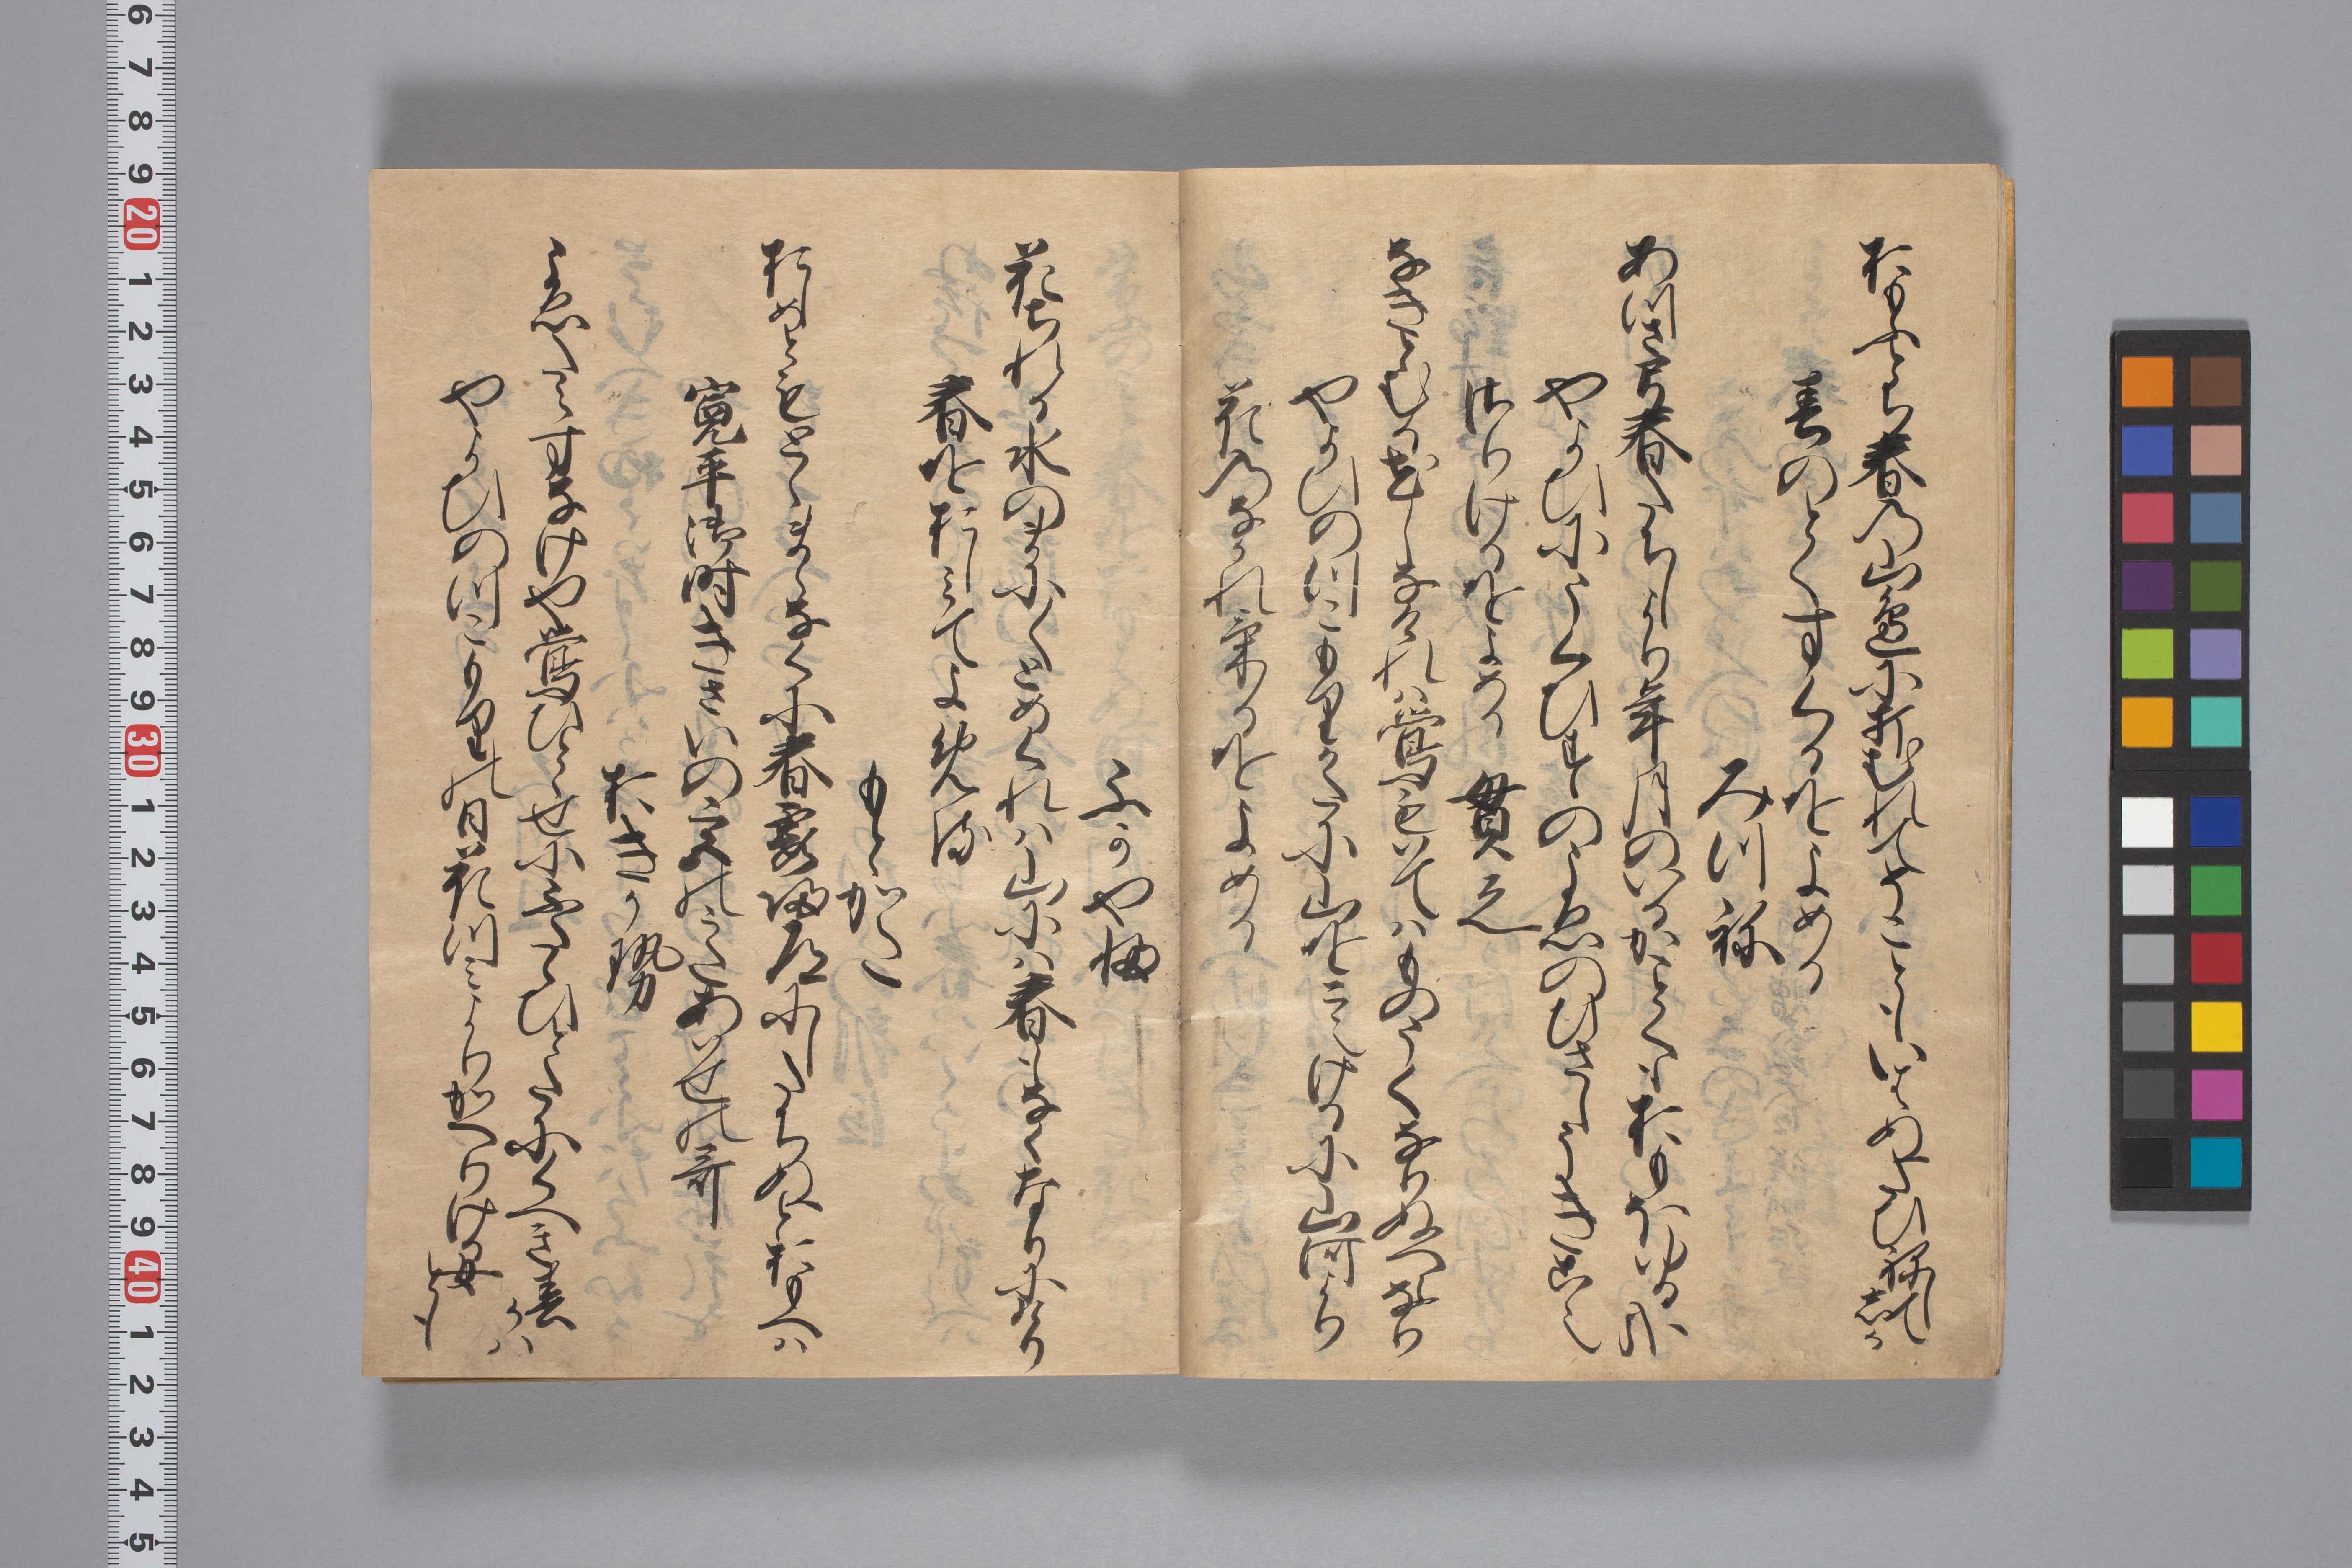 おもふとち春の山邊にうちむれてそこともいはぬたひねしてしか
春のとくすくるをよめる
みつ祢
あつさ弓春たちしより年月のいるかことくもおもほゆるかな
やよひにうくひすのこゑのひさしうきこえ
さりけるをよめる 貫之
なきとむる花しなけれは鶯もはてはものうくなりぬへらなり
やよひのつこもりかたに山をこえけるに山川より
花のなかれけるをよめる
ふかやふ
花ちれる水のまにまにとめくれは山には春もなくなりにけり
春をおしみてよめる
もとかた
おしめともとゝまらなくに春霞帰道にしたちぬとおもへは
寛平御時きさいの宮のうたあはせの哥
おきか勢
こゑたえすなけや鶯ひとゝせにふたゝひとたにくへき春かは
やよひのつこもりの日花つみよりかへりける